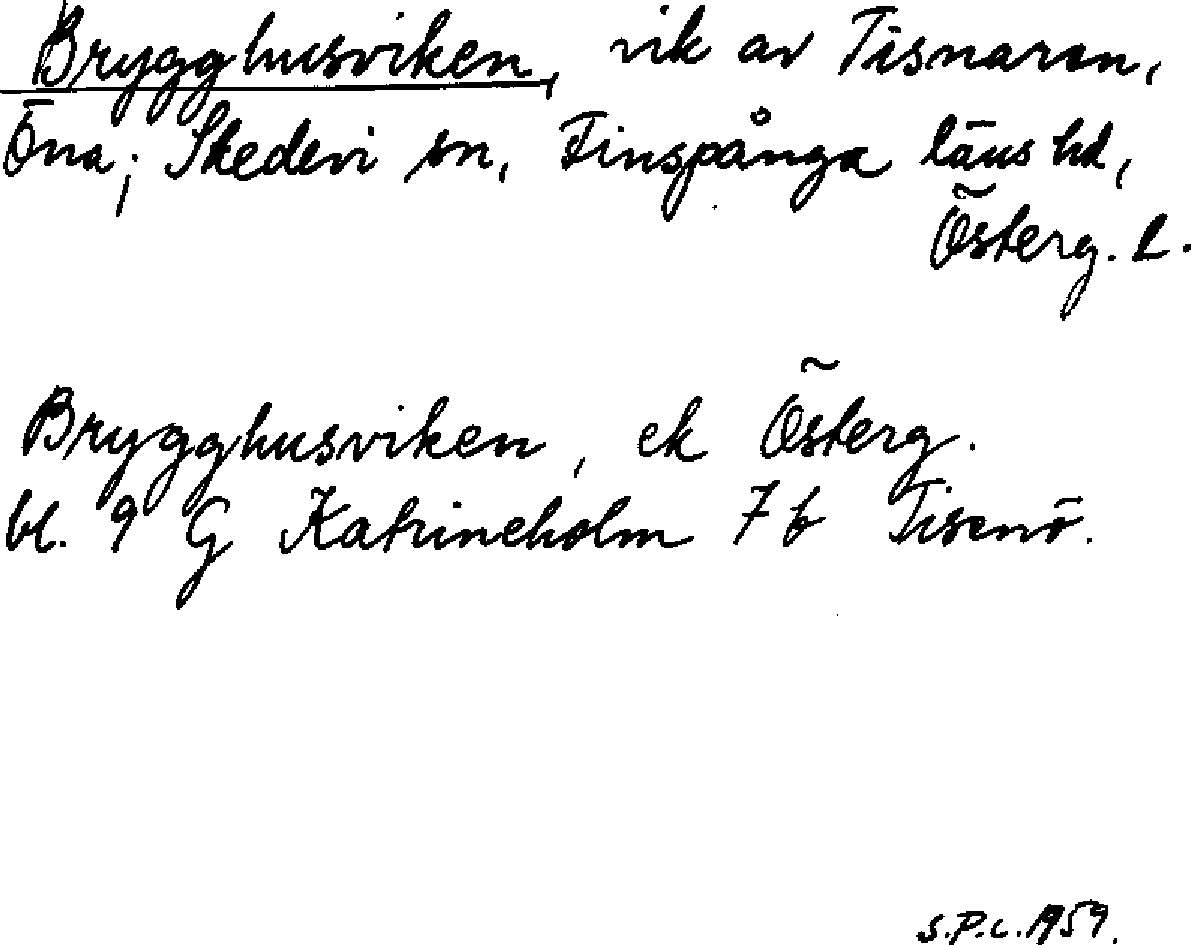 Brygghusviken, vik av Tisnaren,
Öna; Skedevi sn, Finspånga läns hd,
Österg. l.
Brygghusviken, ek Österg.
bl. 9 G Katrineholm 7 b Tisenö.
S.P.c. 1959.